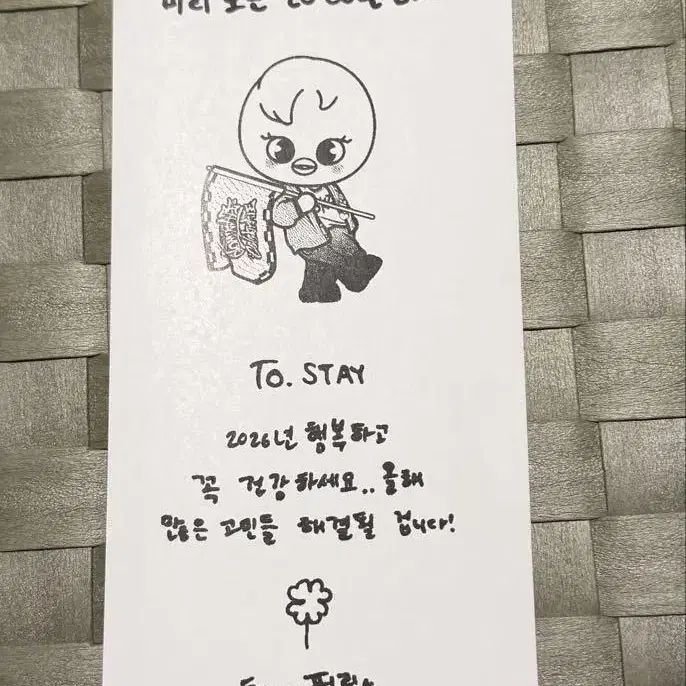 To. STAY
2026년 행복하고
꼭 건강하세요.. 올해
많은 고민들 해결될 겁니다!